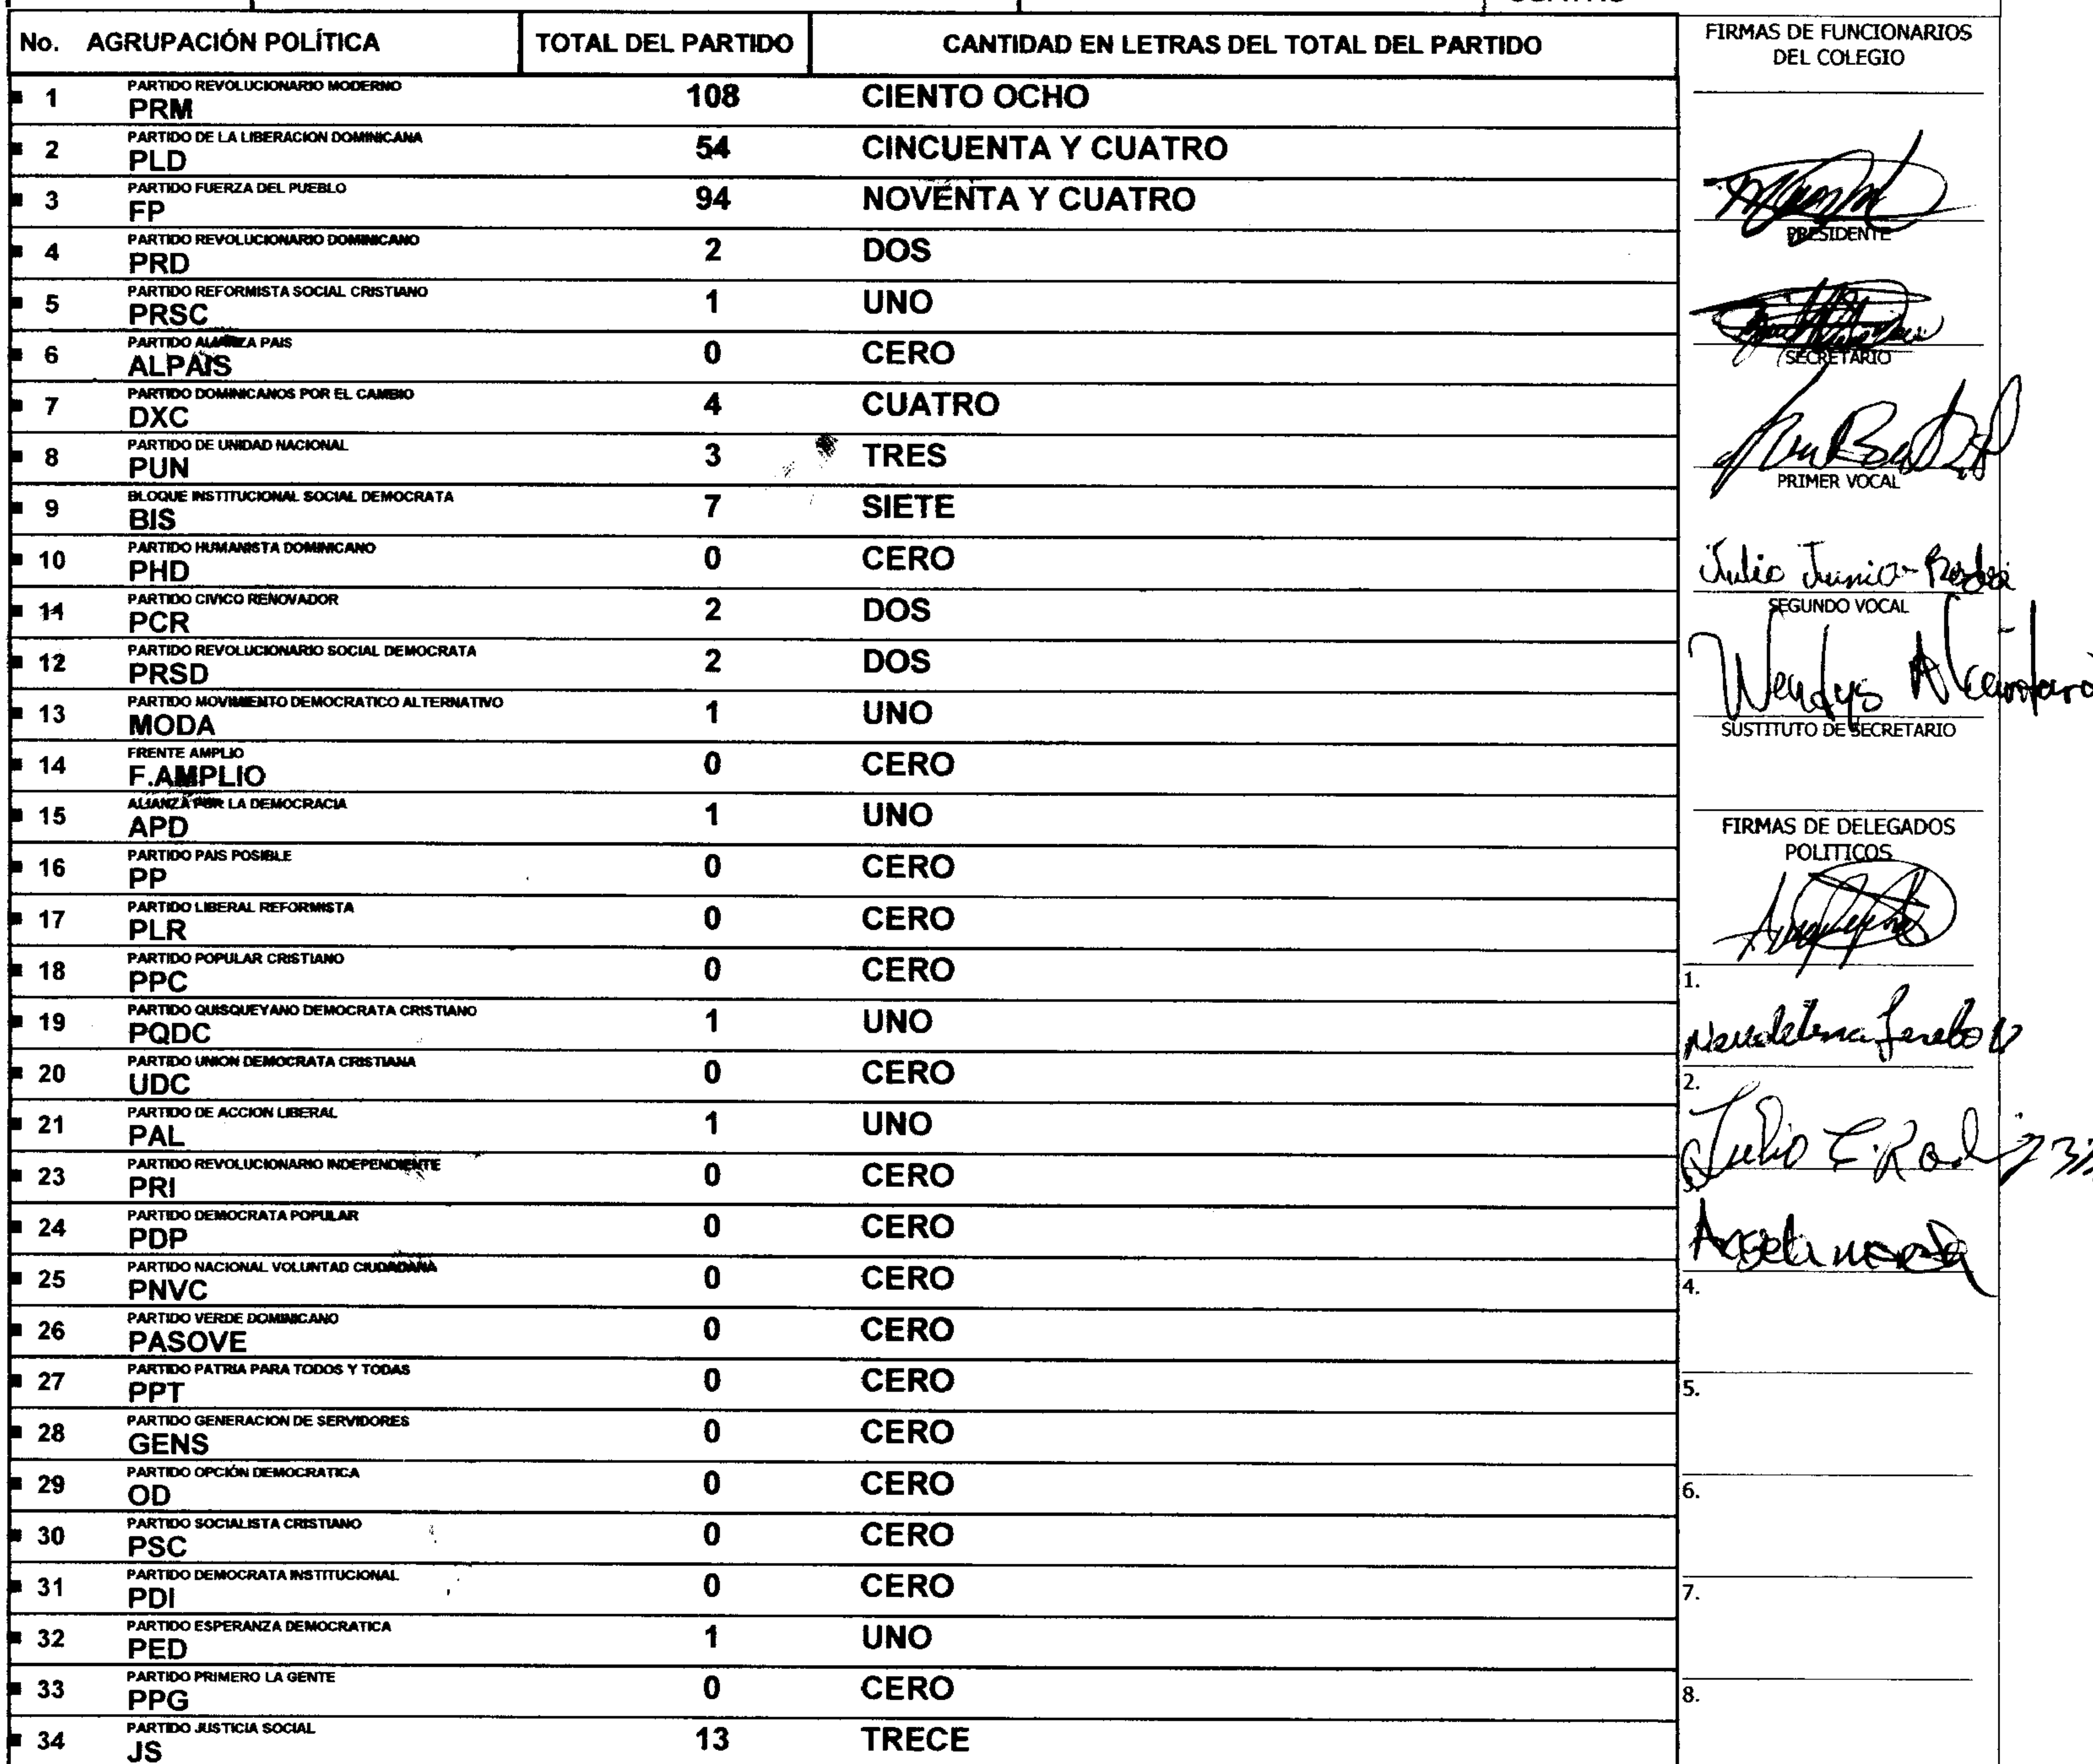 No. AGRUPACIÓN POLÍTICA TOTAL DEL PARTIDO CANTIDAD EN LETRAS DEL TOTAL DEL PARTIDO
PARTIDO REVOLUCIONARIO MODERNO
1 PRM 108 CIENTO OCHO
PARTIDO DE LA LIBERACION DOMINICANA
2 PLD 54 CINCUENTA Y CUATRO
PARTIDO FUERZA DEL PUEBLO
3 FP 94 NOVENTA Y CUATRO
PARTIDO REVOLUCIONARIO DOMINICANO
4 PRD 2 DOS
PARTIDO REFORMISTA SOCIAL CRISTIANO
5 PRSC 1 UNO
PARTIDO ALIANZA PAIS
6 ALPAIS 0 CERO
PARTIDO DOMINICANOS POR EL CAMBIO
7 DXC 4 CUATRO
PARTIDO DE UNIDAD NACIONAL
8 PUN 3 TRES
BLOQUE INSTITUCIONAL SOCIAL DEMOCRATA
9 BIS 7 SIETE
PARTIDO HUMANISTA DOMINICANO
10 PHD 0 CERO
PARTIDO CIVICO RENOVADOR
11 PCR 2 DOS
PARTIDO REVOLUCIONARIO SOCIAL DEMOCRATA
12 PRSD 2 DOS
PARTIDO MOVIMIENTO DEMOCRATICO ALTERNATIVO
13 MODA 1 UNO
FRENTE AMPLIO
14 F.AMPLIO 0 CERO
ALIANZA POR LA DEMOCRACIA
15 APD 1 UNO
PARTIDO PAIS POSIBLE
16 PP 0 CERO
PARTIDO LIBERAL REFORMISTA
17 PLR 0 CERO
PARTIDO POPULAR CRISTIANO
18 PPC 0 CERO
PARTIDO QUISQUEYANO DEMOCRATA CRISTIANO
19 PQDC 1 UNO
PARTIDO UNION DEMOCRATA CRISTIANA
20 UDC 0 CERO
PARTIDO DE ACCION LIBERAL
21 PAL 1 UNO
PARTIDO REVOLUCIONARIO INDEPENDIENTE
23 PRI 0 CERO
PARTIDO DEMOCRATA POPULAR
24 PDP 0 CERO
PARTIDO NACIONAL VOLUNTAD CIUDADANA
25 PNVC 0 CERO
PARTIDO VERDE DOMINICANO
26 PASOVE 0 CERO
PARTIDO PATRIA PARA TODOS Y TODAS
27 PPT 0 CERO
PARTIDO GENERACION DE SERVIDORES
28 GENS 0 CERO
PARTIDO OPCIÓN DEMOCRATICA
29 OD 0 CERO
PARTIDO SOCIALISTA CRISTIANO
30 PSC 0 CERO
PARTIDO DEMOCRATA INSTITUCIONAL
31 PDI 0 CERO
PARTIDO ESPERANZA DEMOCRATICA
32 PED 1 UNO
PARTIDO PRIMERO LA GENTE
33 PPG 0 CERO
PARTIDO JUSTICIA SOCIAL
34 JS 13 TRECE
FIRMAS DE FUNCIONARIOS
DEL COLEGIO
PRESIDENTE
SECRETARIO
PRIMER VOCAL
Julio Junior
SEGUNDO VOCAL
Wendys Alcantara
SUSTITUTO DE SECRETARIO
FIRMAS DE DELEGADOS
POLITICOS
1.
2.
Julio C.
3.
4.
5.
6.
7.
8.